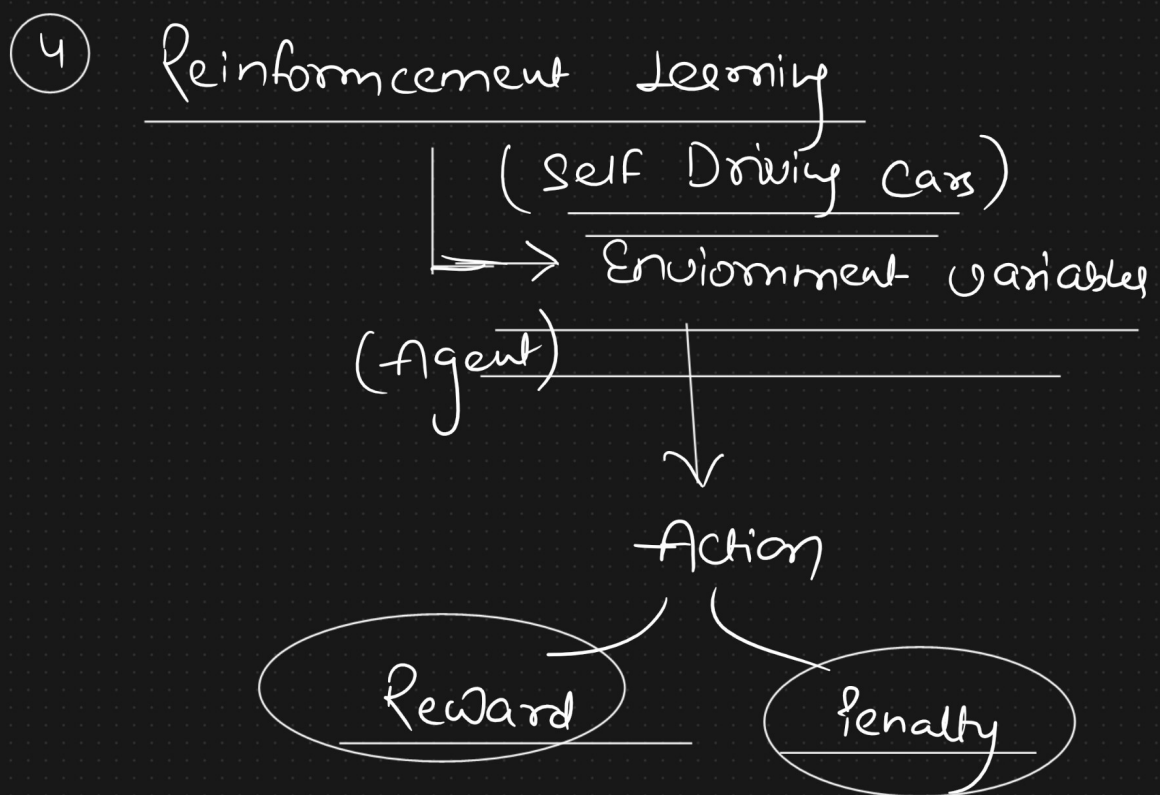 4 Reinformcement Learning
(Self Driving Cars)
Enviornment variables
(Agent)
Action
Reward Penalty